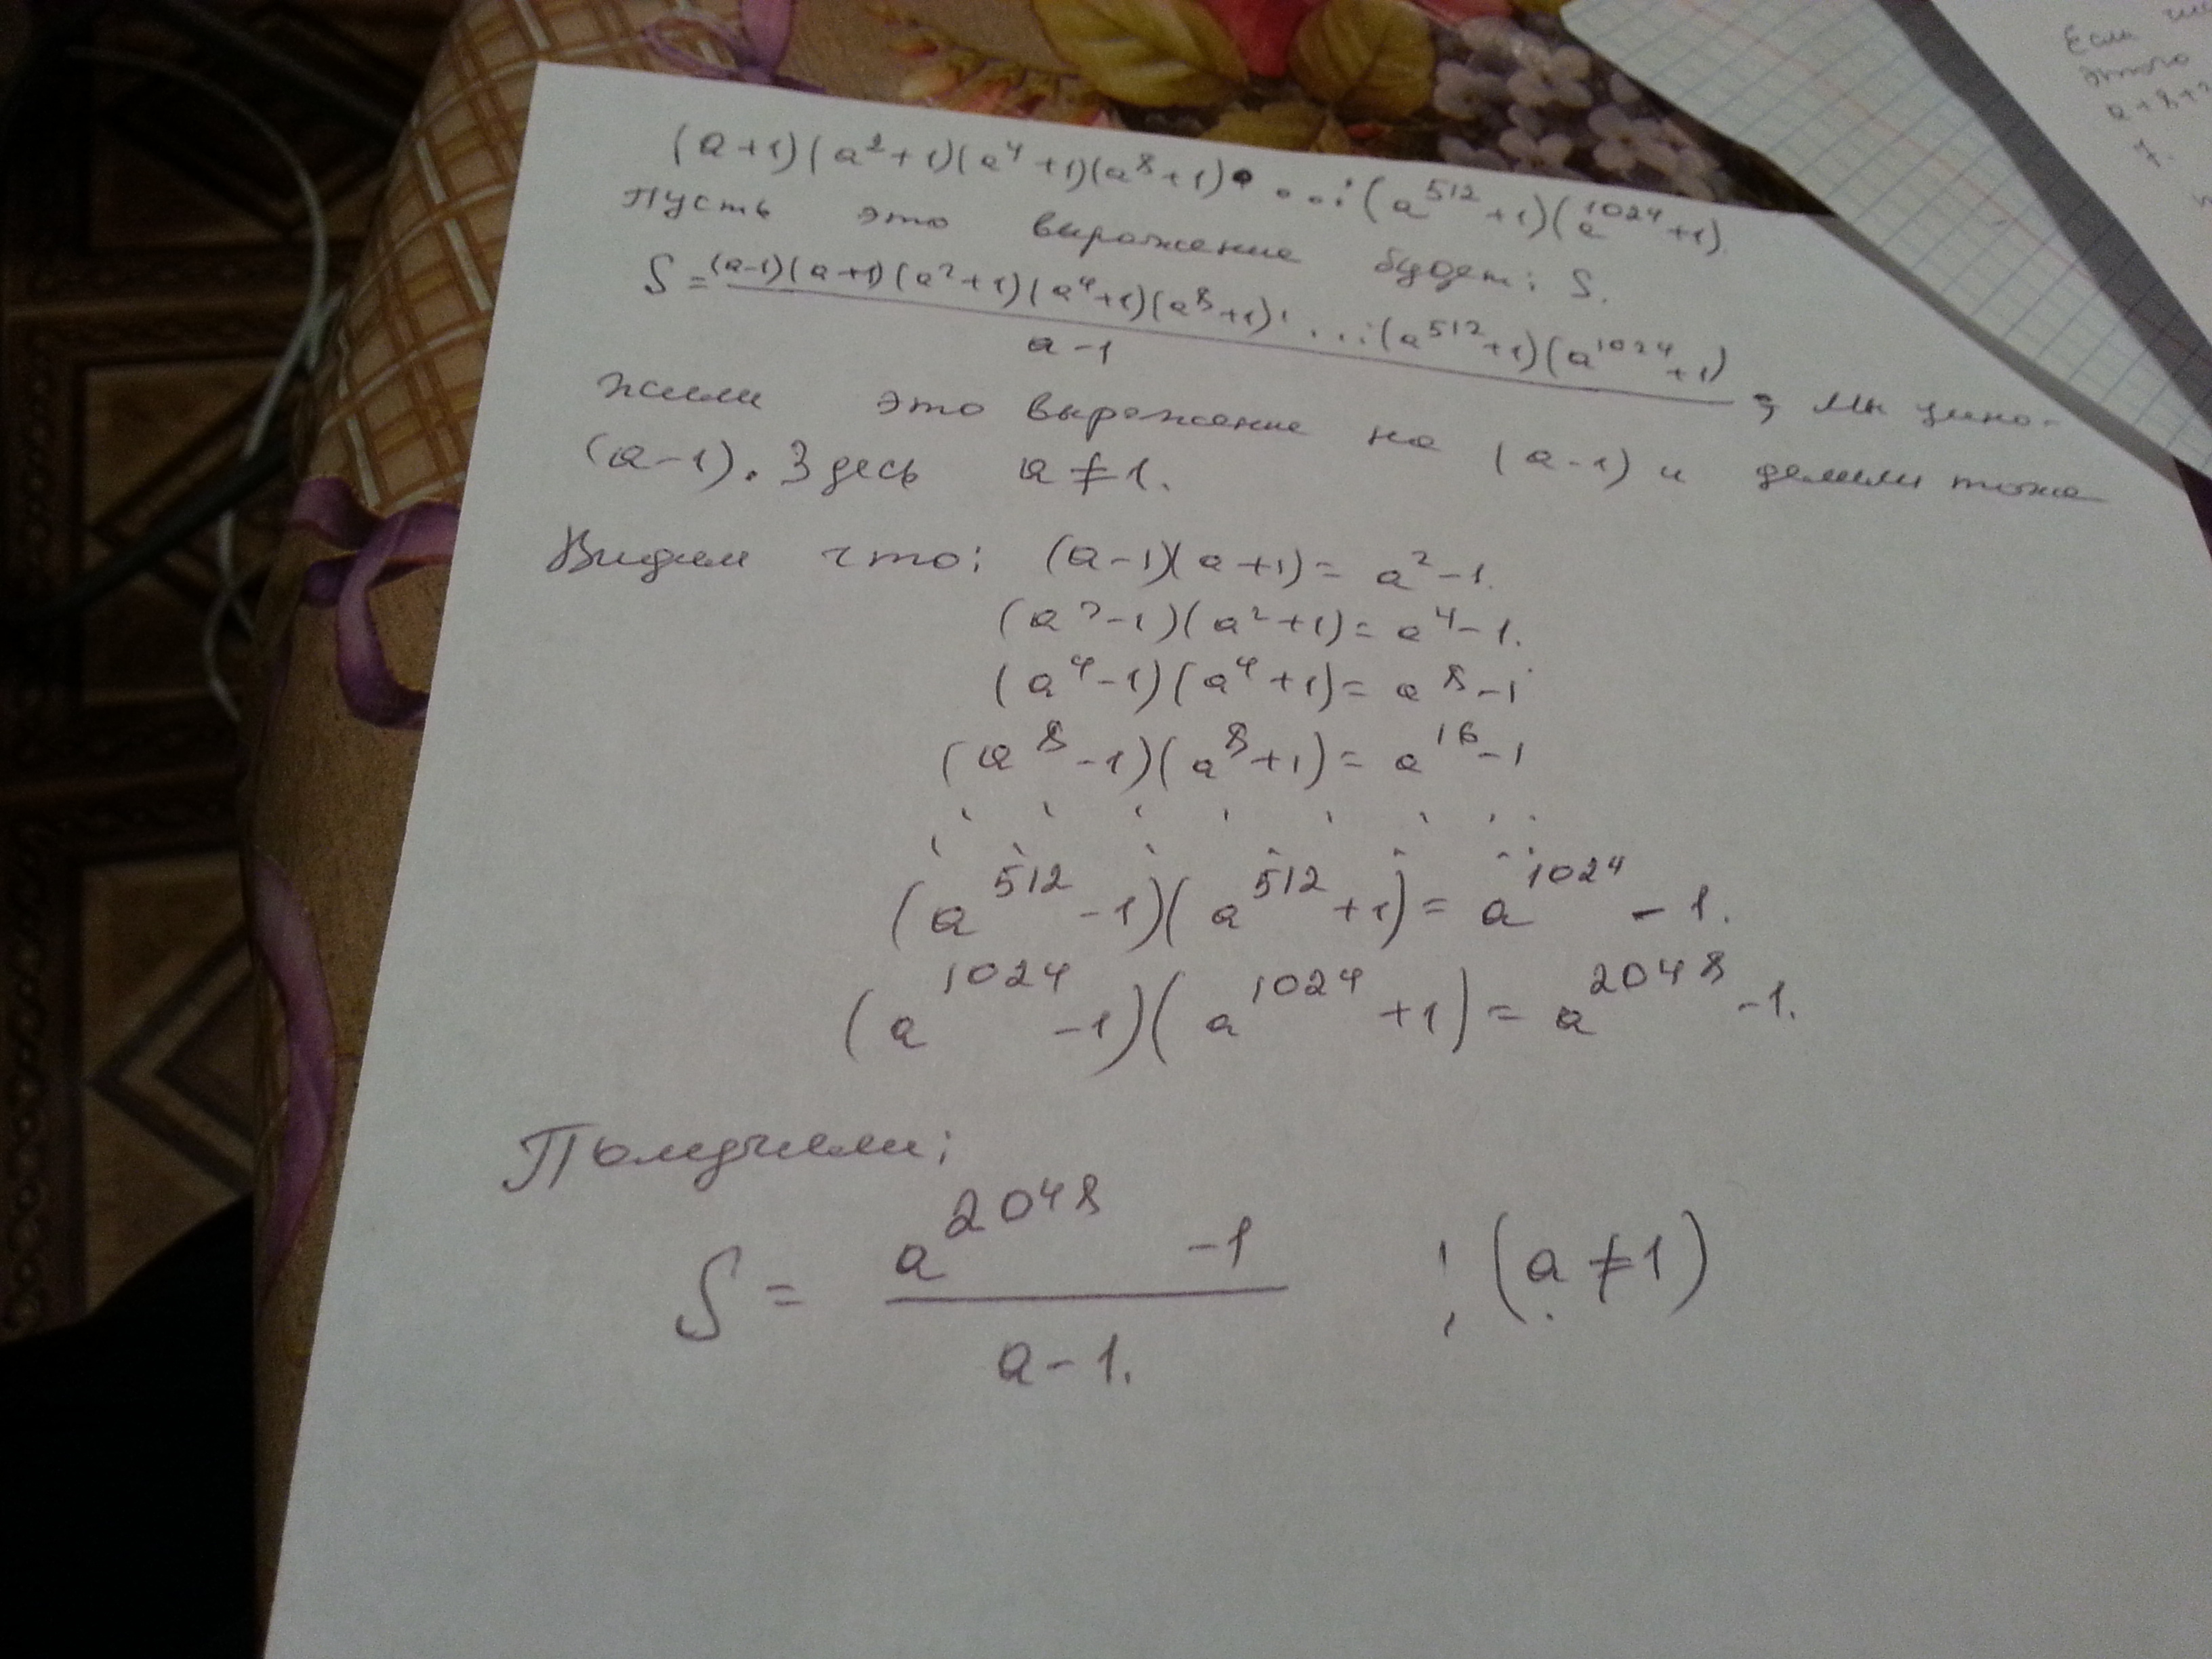 (a+1)(a²+1)(a⁴+1)(a⁸+1)• ...·(a⁵¹²+1)(a¹⁰²⁴+1).
Пусть это выражение будет: S.
S = (a-1)(a+1)(a²+1)(a⁴+1)(a⁸+1)· ...·(a⁵¹²+1)(a¹⁰²⁴+1) ; Мы умно-
a-1
жили это выражение на (a-1) и делили тоже
(a-1). Здесь a≠1.
Видим что: (a-1)(a+1)= a²-1.
(a²-1)(a²+1)= a⁴-1.
(a⁴-1)(a⁴+1)= a⁸-1
(a⁸-1)(a⁸+1)= a¹⁶-1
(a⁵¹²-1)(a⁵¹²+1)= a¹⁰²⁴-1.
(a¹⁰²⁴-1)(a¹⁰²⁴+1)= a²⁰⁴⁸-1.
Получили:
S = a²⁰⁴⁸ -1 ; (a≠1)
a-1.
Если
этого